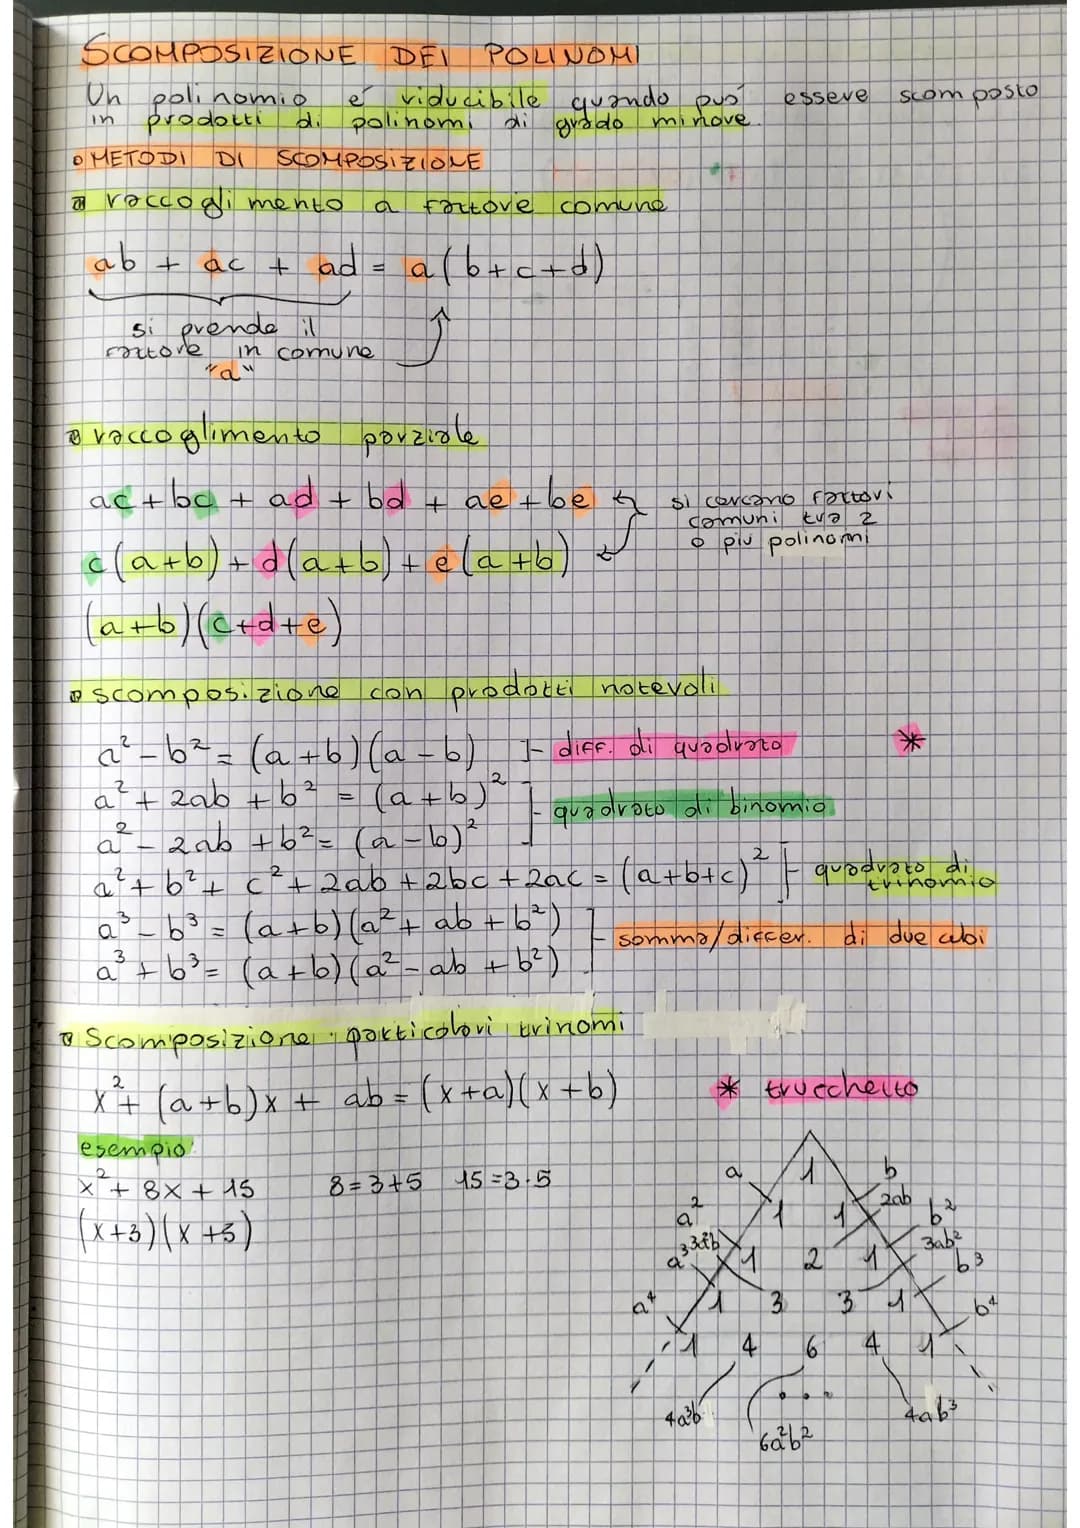 SCOMPOSIZIONE DEI POLINOMI
Un polinomio é riducibile quando puó essere scomposto
in prodotti di polinomi di grado minore.
METODI DI SCOMPOSIZIONE
raccoglimento a fattore comune
ab + ac + ad = a(b+c+d)
si prende il
fattore in comune
"a"
raccoglimento parziale
ac + bc + ad + bd + ae + be
si cercano fattori
comuni tra 2
o piu polinomi
c(a+b) + d(a+b) + e(a+b)
(a+b)(c+d+e)
scomposizione con prodotti notevoli
a² - b² = (a+b)(a-b) diff. di quadrato *
a² + 2ab + b² = (a+b)²
quadrato di binomio
a² - 2ab + b² = (a-b)²
a² + b² + c² + 2ab + 2bc + 2ac = (a+b+c)² quadrato di
trinomio
a³ - b³ = (a+b)(a² + ab + b²)
somma/differ. di due cubi
a³ + b³ = (a+b)(a² - ab + b²)
Scomposizione particolari trinomi
x² + (a+b)x + ab = (x+a)(x+b) * trucchetto
esempio:
x² + 8x + 15 8=3+5 15=3·5
(x+3)(x+5)
1
a b
1 1 2ab
a² b²
3a²b 1 2 1 3ab²
a³ b³
1 3 3 1
a⁴ b⁴
1 4 6 4 1
...
4a³b 6a²b² 4ab³